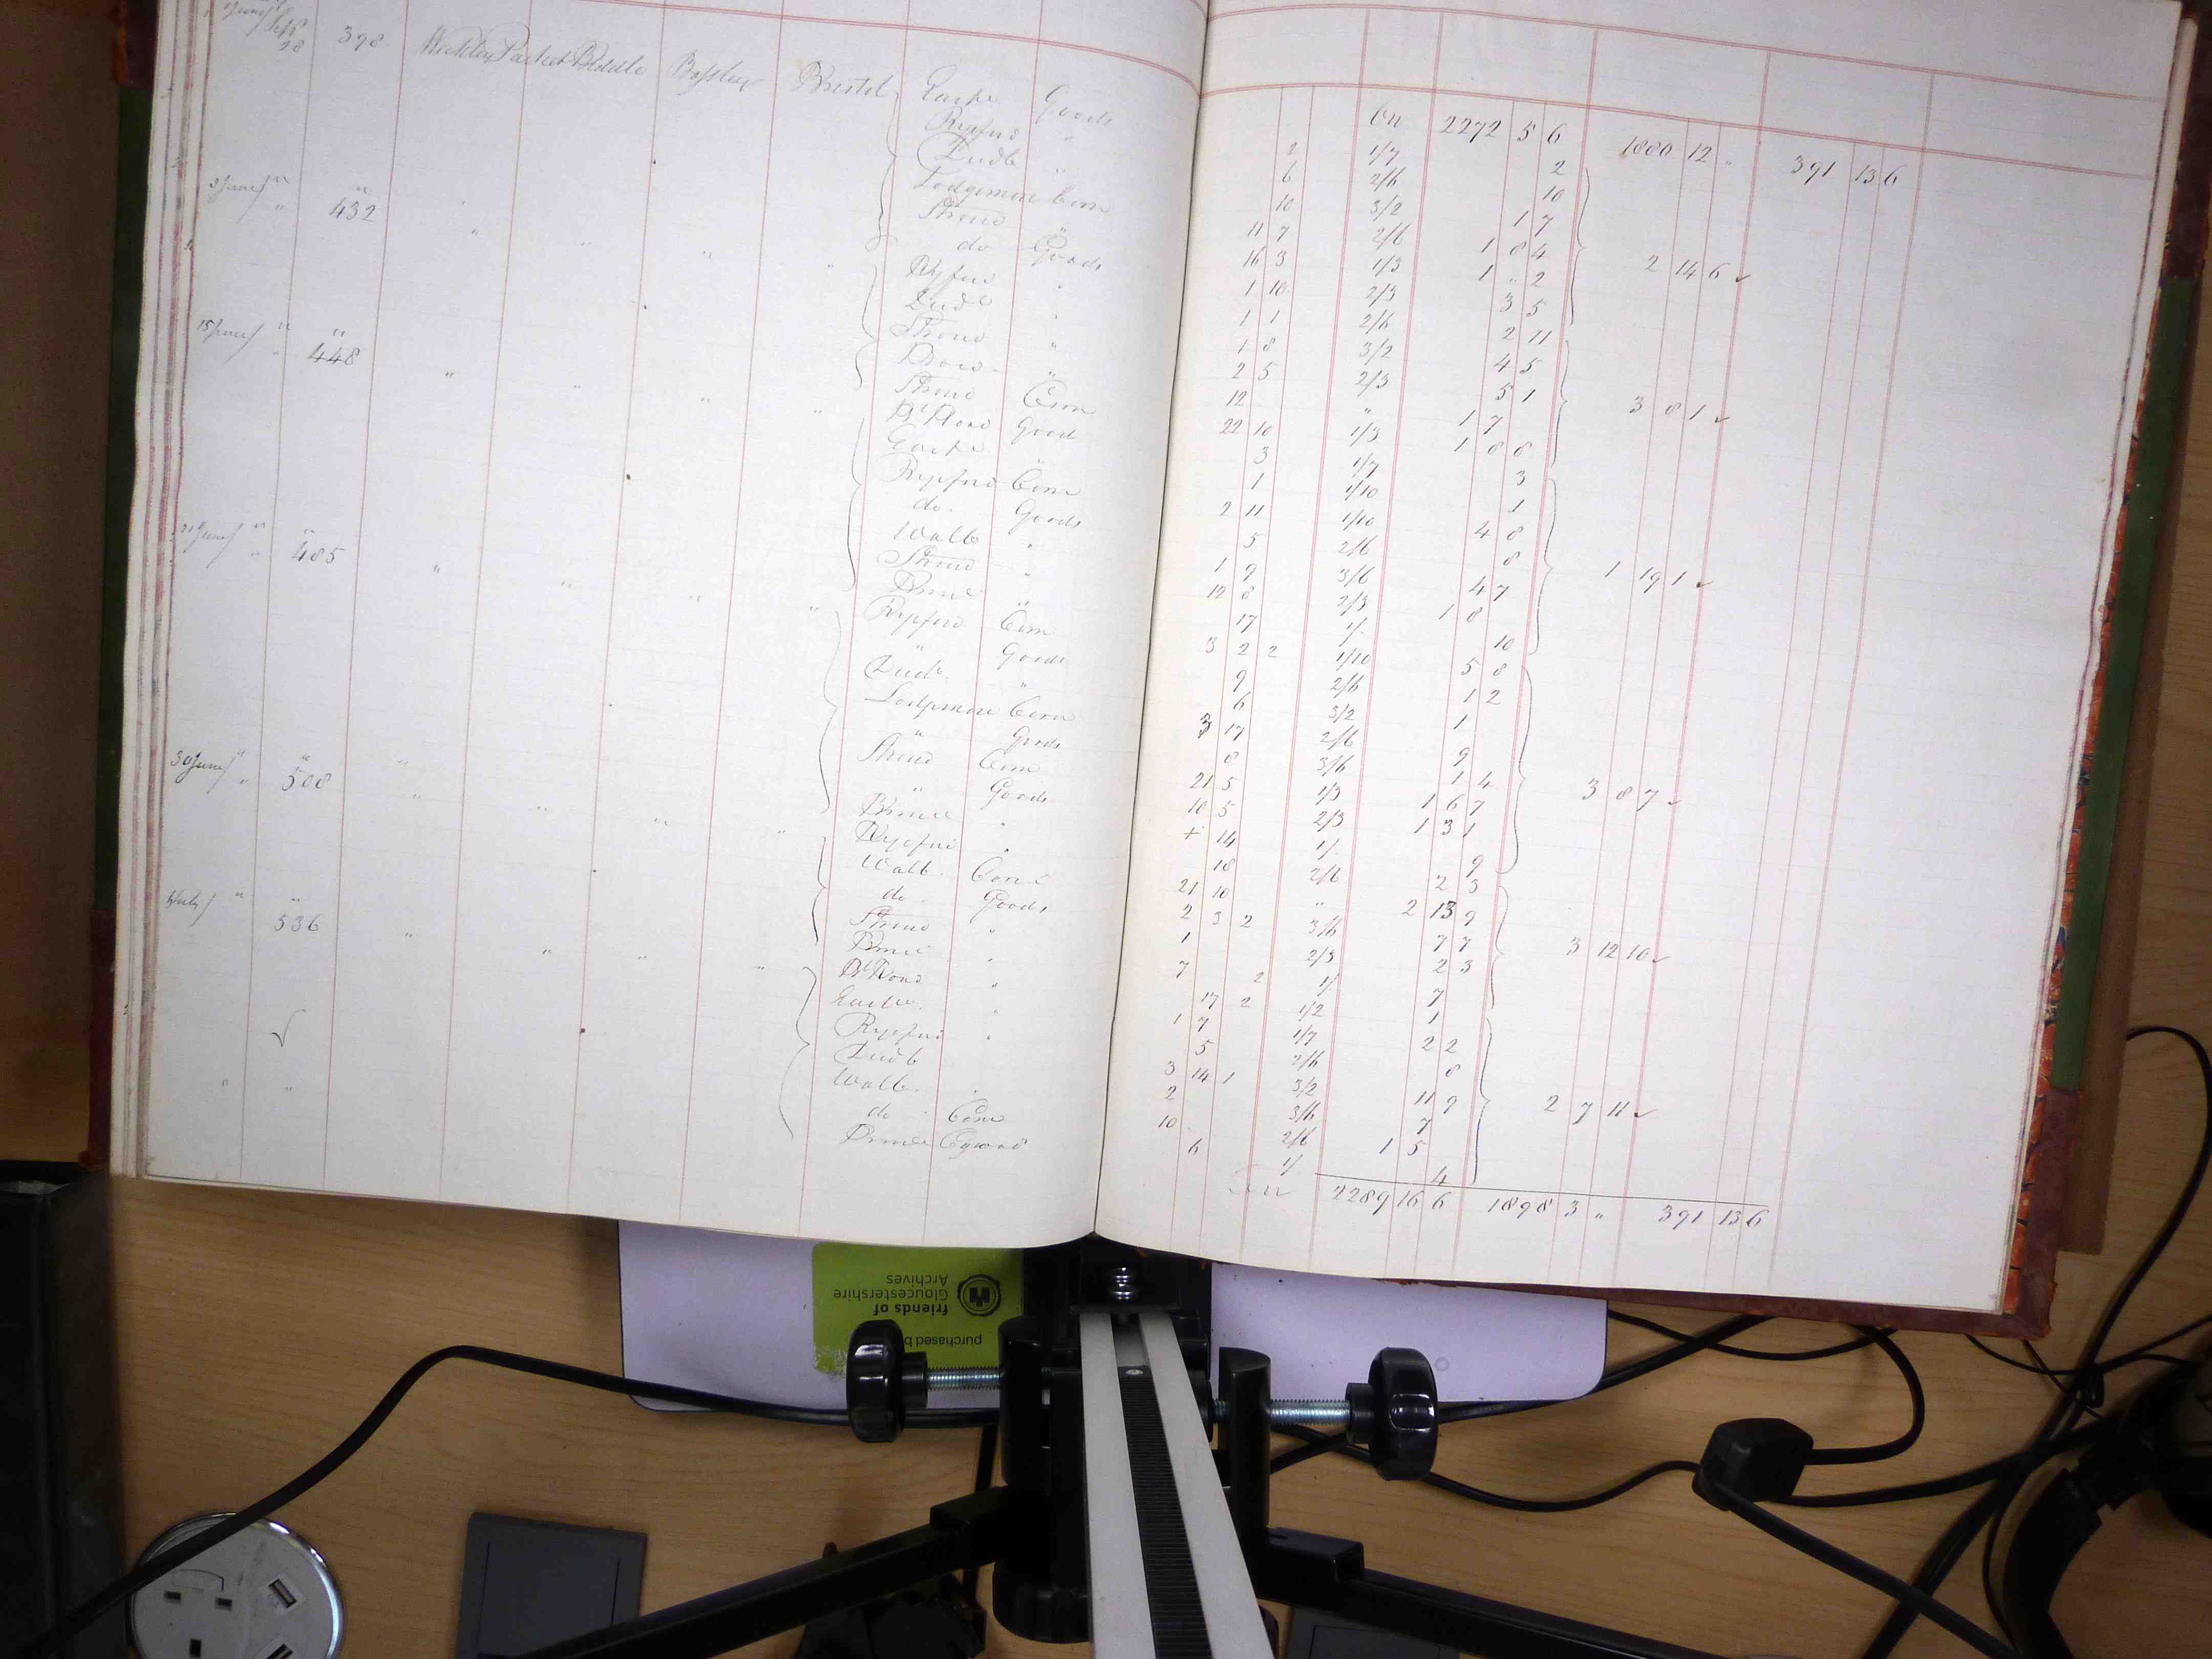 Sept 28 398 Weekley Packet Biddle Bristol Goods
Ryeford "
Dudb "
3 June " 432 Lodgemore Corn
Stroud "
do Goods
Ryeford "
Dudb "
15 June " 448 Stroud "
Stroud Corn
Goods
Ryeford Corn
do. Goods
21 June " 485 Walb "
Stroud "
Ryeford Corn
" Goods
Dudb. "
Lodgemore Corn
" Goods
30 June " 508 Stroud Corn
" Goods
Ryeford "
Walb. Corn
do. Goods
July " 536 Stroud "
Ryeford "
Dudb
Walb.
do. Corn
2272 5 6 1880 12 " 391 13 6
2 1/7 2
6 2/6 10
10 3/2 1 7
11 7 2/6 1 8 4
16 3 1/3 1 " 2 2 14 6
1 10 2/3 3 5
1 1 2/6 2 11
1 8 3/2 4 5
2 5 2/3 5 1
12 " 1 7 3 8 1
22 10 1/3 1 8 8
3 1/7 3
1 1/10 1
2 11 1/10 4 8
5 2/6 8
1 9 3/6 4 7 1 19 1
12 8 2/3 1 8
17 1/. 10
3 2 2 1/10 5 8
9 2/6 1 2
6 3/2 1
3 17 2/6 9
8 3/6 1 4
21 5 1/3 1 6 7 3 8 7
10 5 2/3 1 3 1
14 1/. 9
18 2/6 2 3
21 10 " 2 13 9
2 3 2 3/6 7 7 3 12 10
1 2/3 2 3
7 2 1/. 7
17 2 1/2 1
1 7 1/7 2 2
5 2/6 8
3 14 1 3/2 11 9
2 3/6 7 2 7 11
10 2/6 1 5
6 1/ 4
2289 16 6 1898 3 " 391 13 6
purchased b
friends of
Gloucestershire
Archives